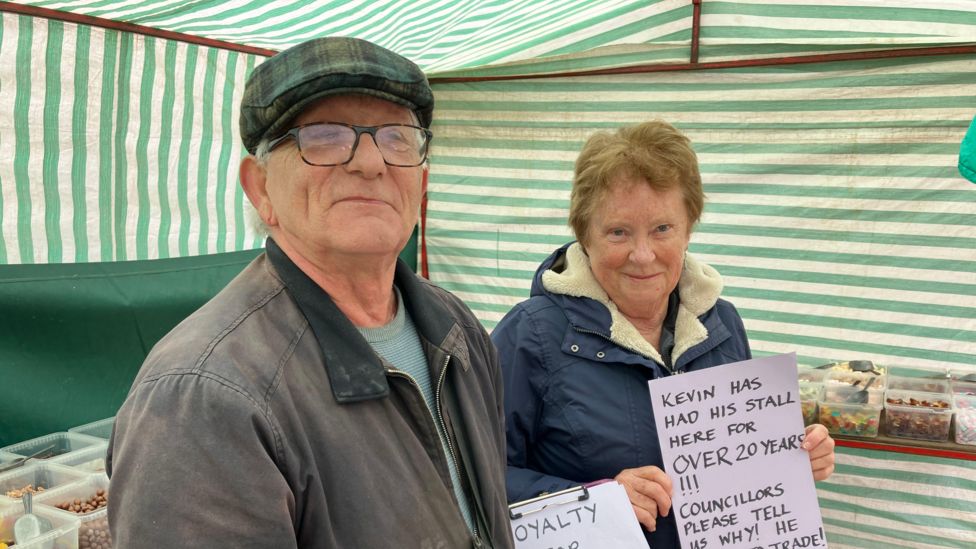 KEVIN HAS
HAD HIS STALL
HERE FOR
OVER 20 YEARS
!!!
COUNCILLORS
PLEASE TELL
US WHY! HE
TRADE!
LOYALTY